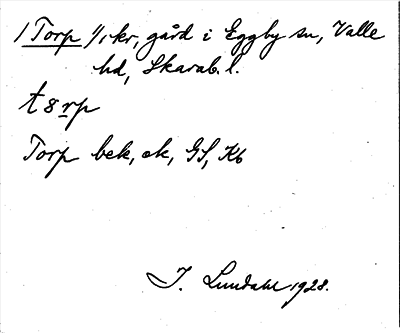 / Torp 1/1 kr, gård i Eggby sn, Valle
hd, Skarab. l.
t 8 rp
Torp bek, ok, GS, Kb
I. Lundahl 1928.